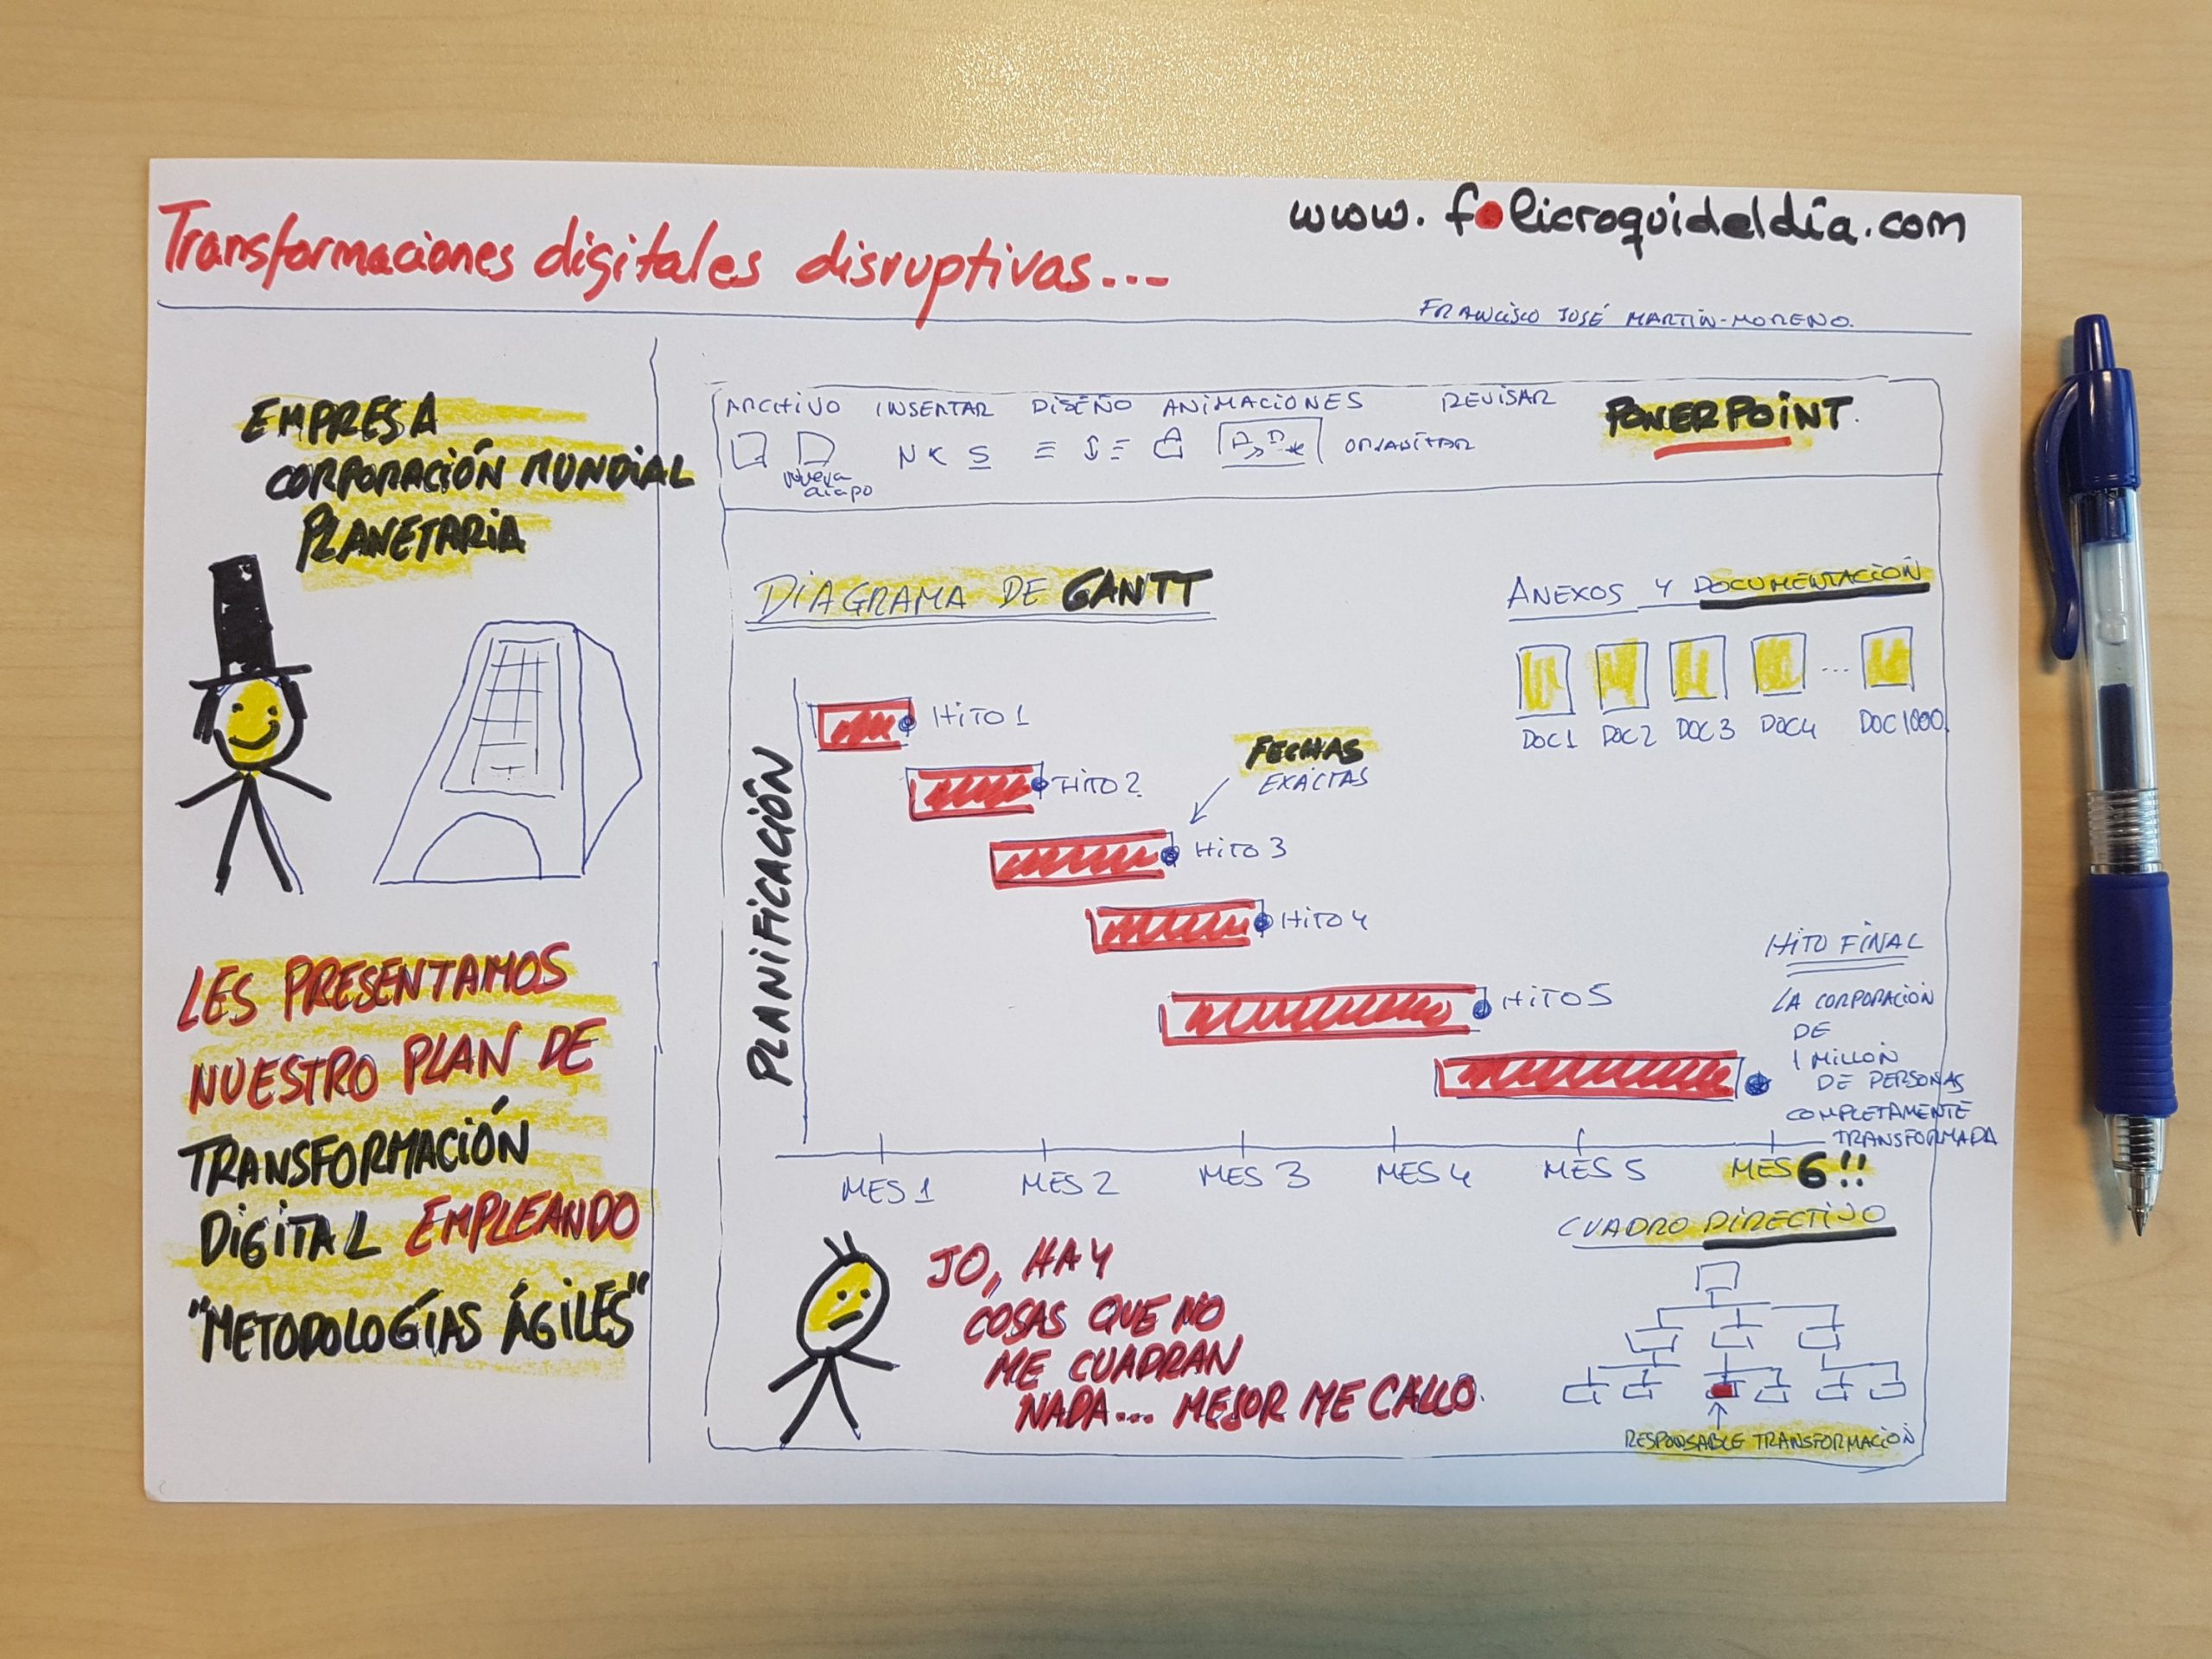 Transformaciones digitales disruptivas...
www.folicroquideldía.com
FRANCISCO JOSÉ MARTÍN-MORENO.
EMPRESA
CORPORACIÓN MUNDIAL
PLANETARIA
LES PRESENTAMOS
NUESTRO PLAN DE
TRANSFORMACIÓN
DIGITAL EMPLEANDO
"METODOLOGÍAS ÁGILES"
ARCHIVO INSERTAR DISEÑO ANIMACIONES REVISAR
POWERPOINT.
N K S
NUEVA
DIAPO
ORGANIZAR
DIAGRAMA DE GANTT
ANEXOS Y DOCUMENTACIÓN
DOC1 DOC2 DOC3 DOC4 ... DOC1000
PLANIFICACIÓN
HITO 1
HITO 2
FECHAS
EXACTAS
HITO 3
HITO 4
HITO 5
HITO FINAL
LA CORPORACIÓN
DE
1 MILLÓN
DE PERSONAS
COMPLETAMENTE
TRANSFORMADA
MES 1 MES 2 MES 3 MES 4 MES 5 MES 6!!
JO, HAY
COSAS QUE NO
ME CUADRAN
NADA... MEJOR ME CALLO.
CUADRO DIRECTIVO
RESPONSABLE TRANSFORMACIÓN